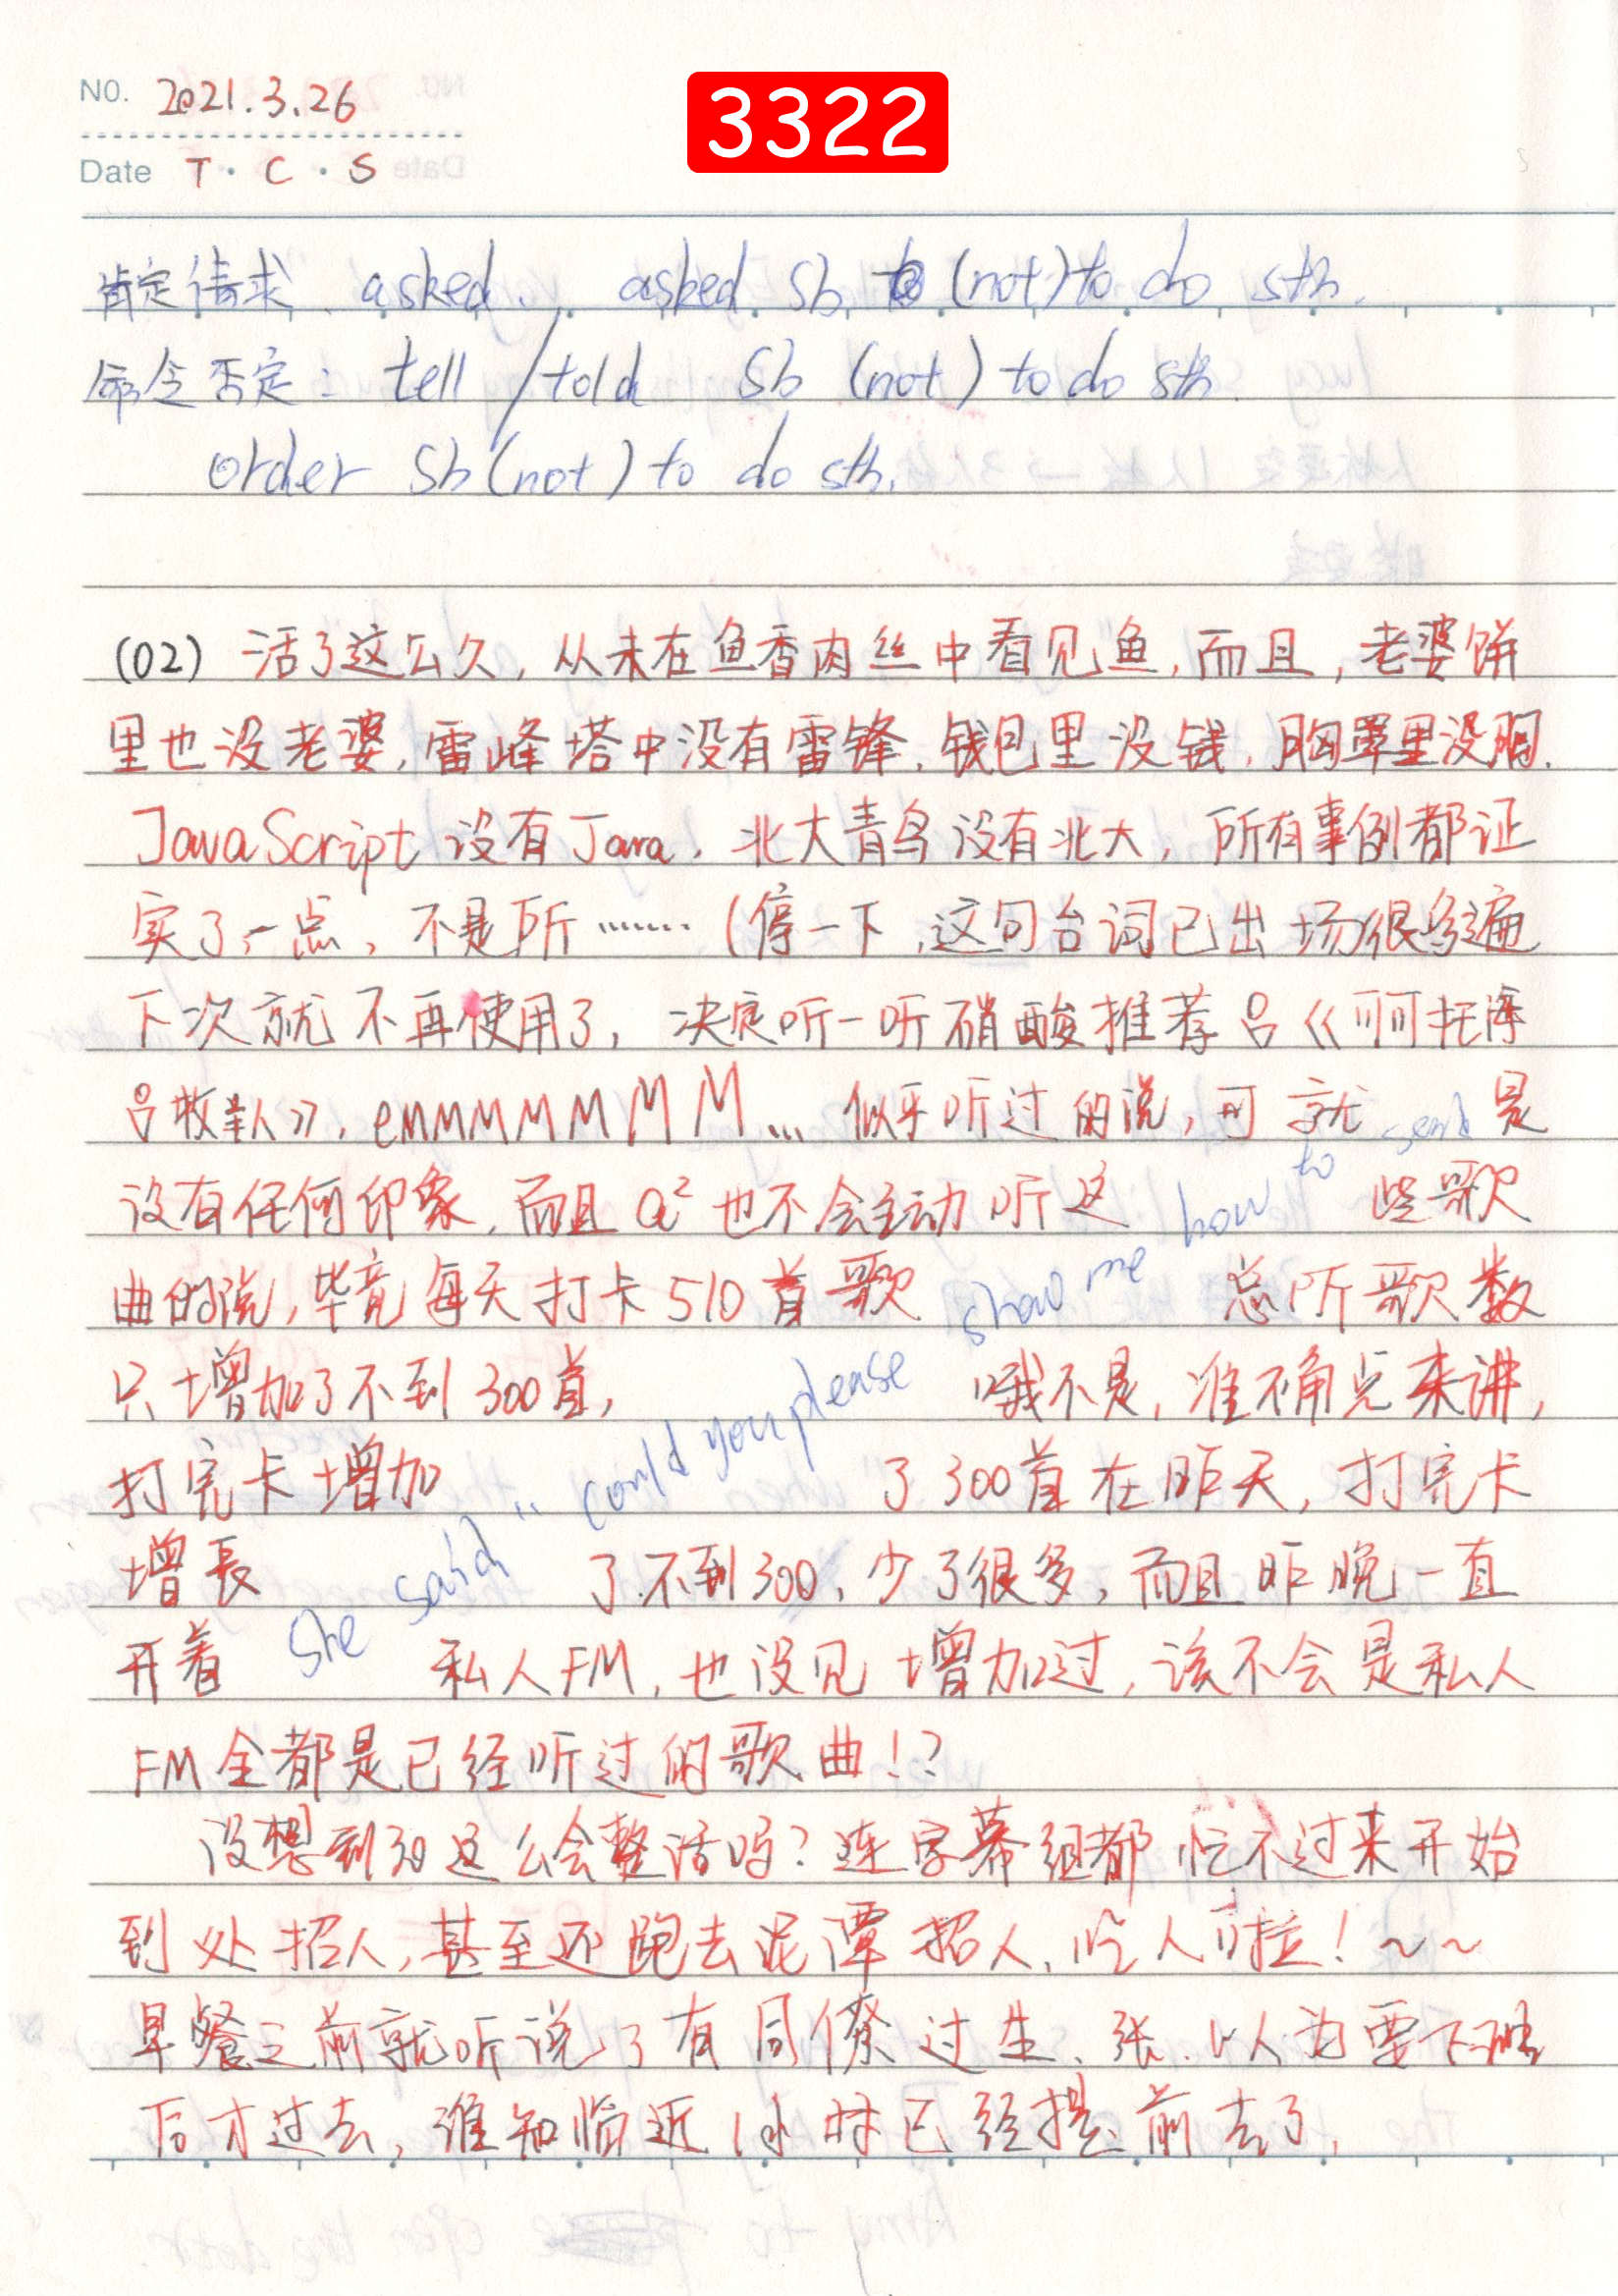 3322
NO. 2021.3.26
Date T·C·S
肯定请求 asked. asked sb (not) to do sth.
命令否定: tell / told sb (not) to do sth.
order sb (not) to do sth.
(02) 活了这么久, 从未在鱼香肉丝中看见鱼, 而且, 老婆饼
里也没老婆, 雷峰塔中没有雷锋, 钱包里没钱, 胸罩里没胸.
JavaScript 没有 Java, 北大青鸟没有北大, 所有事例都证
实了一点, 不是所……(停一下, 这句台词已出场很多遍
下次就不再使用了, 决定听一听硝酸推荐吕《可可托海
吕牧羊人》, emmmmMMM... 似乎听过的说, 可就是
没有任何印象, 而且a² 也不会主动听这些歌
曲的说, 毕竟每天打卡510首歌 总听歌数
只增加了不到300首, 哦不是, 准确点来讲,
打完卡增加 了300首在昨天, 打完卡
增長 了不到300, 少了很多, 而且昨晚一直
开着 私人FM, 也没见增加过, 该不会是私人
FM全都是已经听过的歌曲!?
She said " could you please show me how to send
没想到30这么会整活吗? 连字幕组都忙不过来开始
到处招人, 甚至还跑去泥潭招人, 吃人啦! ~~
早餐之前就听说了有同僚过生, 张, 以为要下
后才过去, 谁知临近1小时已经提前去了,